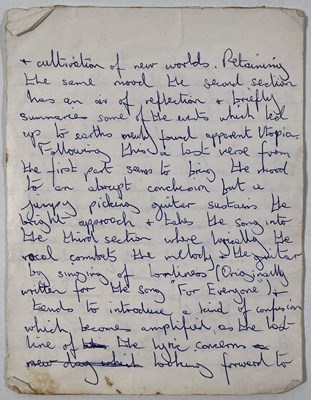 & cultivation of new worlds. Retaining
the same mood the second section
has an air of reflection & briefly
summaries some of the events which led
up to earths newly found apparent Utopia.
Following this a last verse from
the first part seems to bring the mood
to an abrupt conclusion but a
jumpy picking guitar sustains the
bright approach & takes the song into
the third section where lyrically the
vocal combats the melody & the guitar
by singing of lonliness (Originally
written for the song "For Everyone") &
tends to introduce a kind of confusion
which becomes amplified, as the last
line of the lyric concerns a
new day which looking forward to